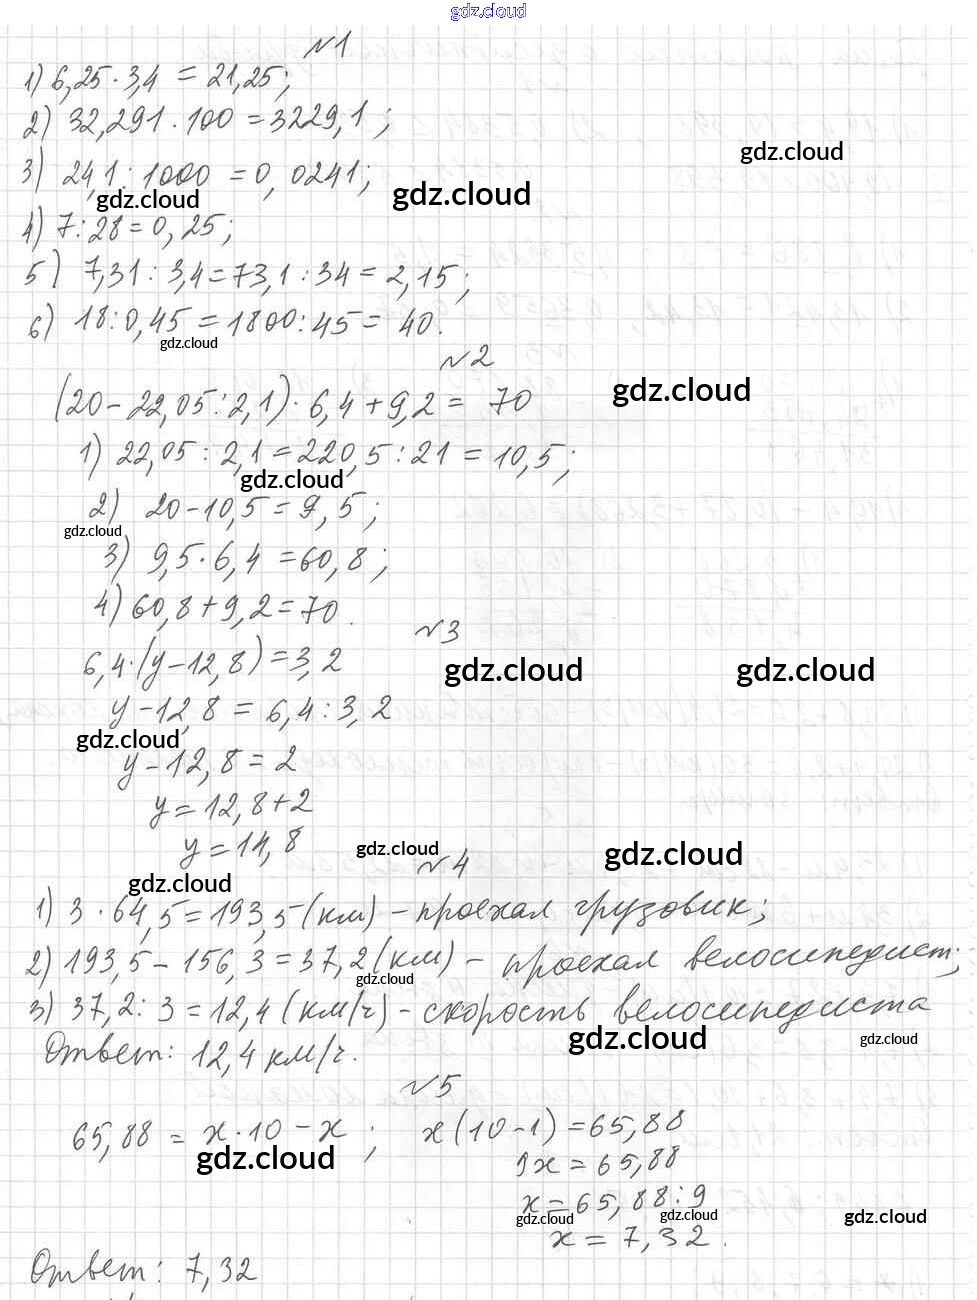 gdz.cloud
№1
1) 6,25 · 3,4 = 21,25;
2) 32,291 · 100 = 3229,1;
gdz.cloud
3) 24,1 : 1000 = 0,0241;
gdz.cloud gdz.cloud
4) 7 : 28 = 0,25;
5) 7,31 : 3,4 = 73,1 : 34 = 2,15;
6) 18 : 0,45 = 1800 : 45 = 40.
gdz.cloud
№2
(20 - 22,05 : 2,1) · 6,4 + 9,2 = 70
gdz.cloud
1) 22,05 : 2,1 = 220,5 : 21 = 10,5;
gdz.cloud
2) 20 - 10,5 = 9,5;
gdz.cloud
3) 9,5 · 6,4 = 60,8;
4) 60,8 + 9,2 = 70.
№3
6,4 · (y - 12,8) = 3,2
gdz.cloud gdz.cloud
y - 12,8 = 6,4 : 3,2
gdz.cloud
y - 12,8 = 2
y = 12,8 + 2
y = 14,8
gdz.cloud gdz.cloud
№4
gdz.cloud
1) 3 · 64,5 = 193,5 (км) - проехал грузовик;
2) 193,5 - 156,3 = 37,2 (км) - проехал велосипедист;
gdz.cloud
3) 37,2 : 3 = 12,4 (км/ч) - скорость велосипедиста
gdz.cloud gdz.cloud
Ответ: 12,4 км/ч.
№5
65,88 = x · 10 - x; x(10-1) = 65,88
gdz.cloud
9x = 65,88
x = 65,88 : 9
gdz.cloud gdz.cloud gdz.cloud
x = 7,32.
Ответ: 7,32